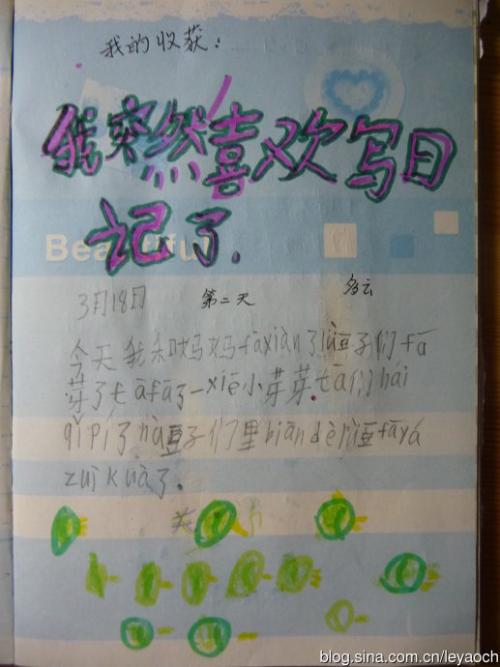 我的收获：
我突然喜欢写日
记了.
Beautiful
3月18日 第二天 多云
今天我和妈妈fāxiàn了lǜ豆子们fā
芽了tāfā了一xiē小芽芽.tā们hái
qǐpí了nà豆子们里biāndèlǜ豆fāyá
zuìkuà了。
blog.sina.com.cn/leyaoch